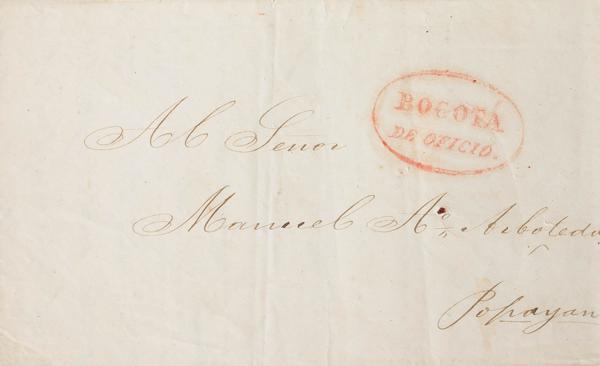 BOGOTÁ
DE OFICIO.
Al Señor
Manuel Ao. Arboleda
Popayan